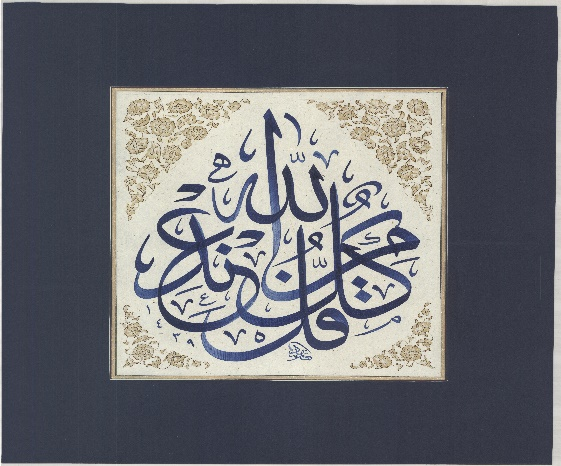 قل كل من عند الله
١٤٢٩